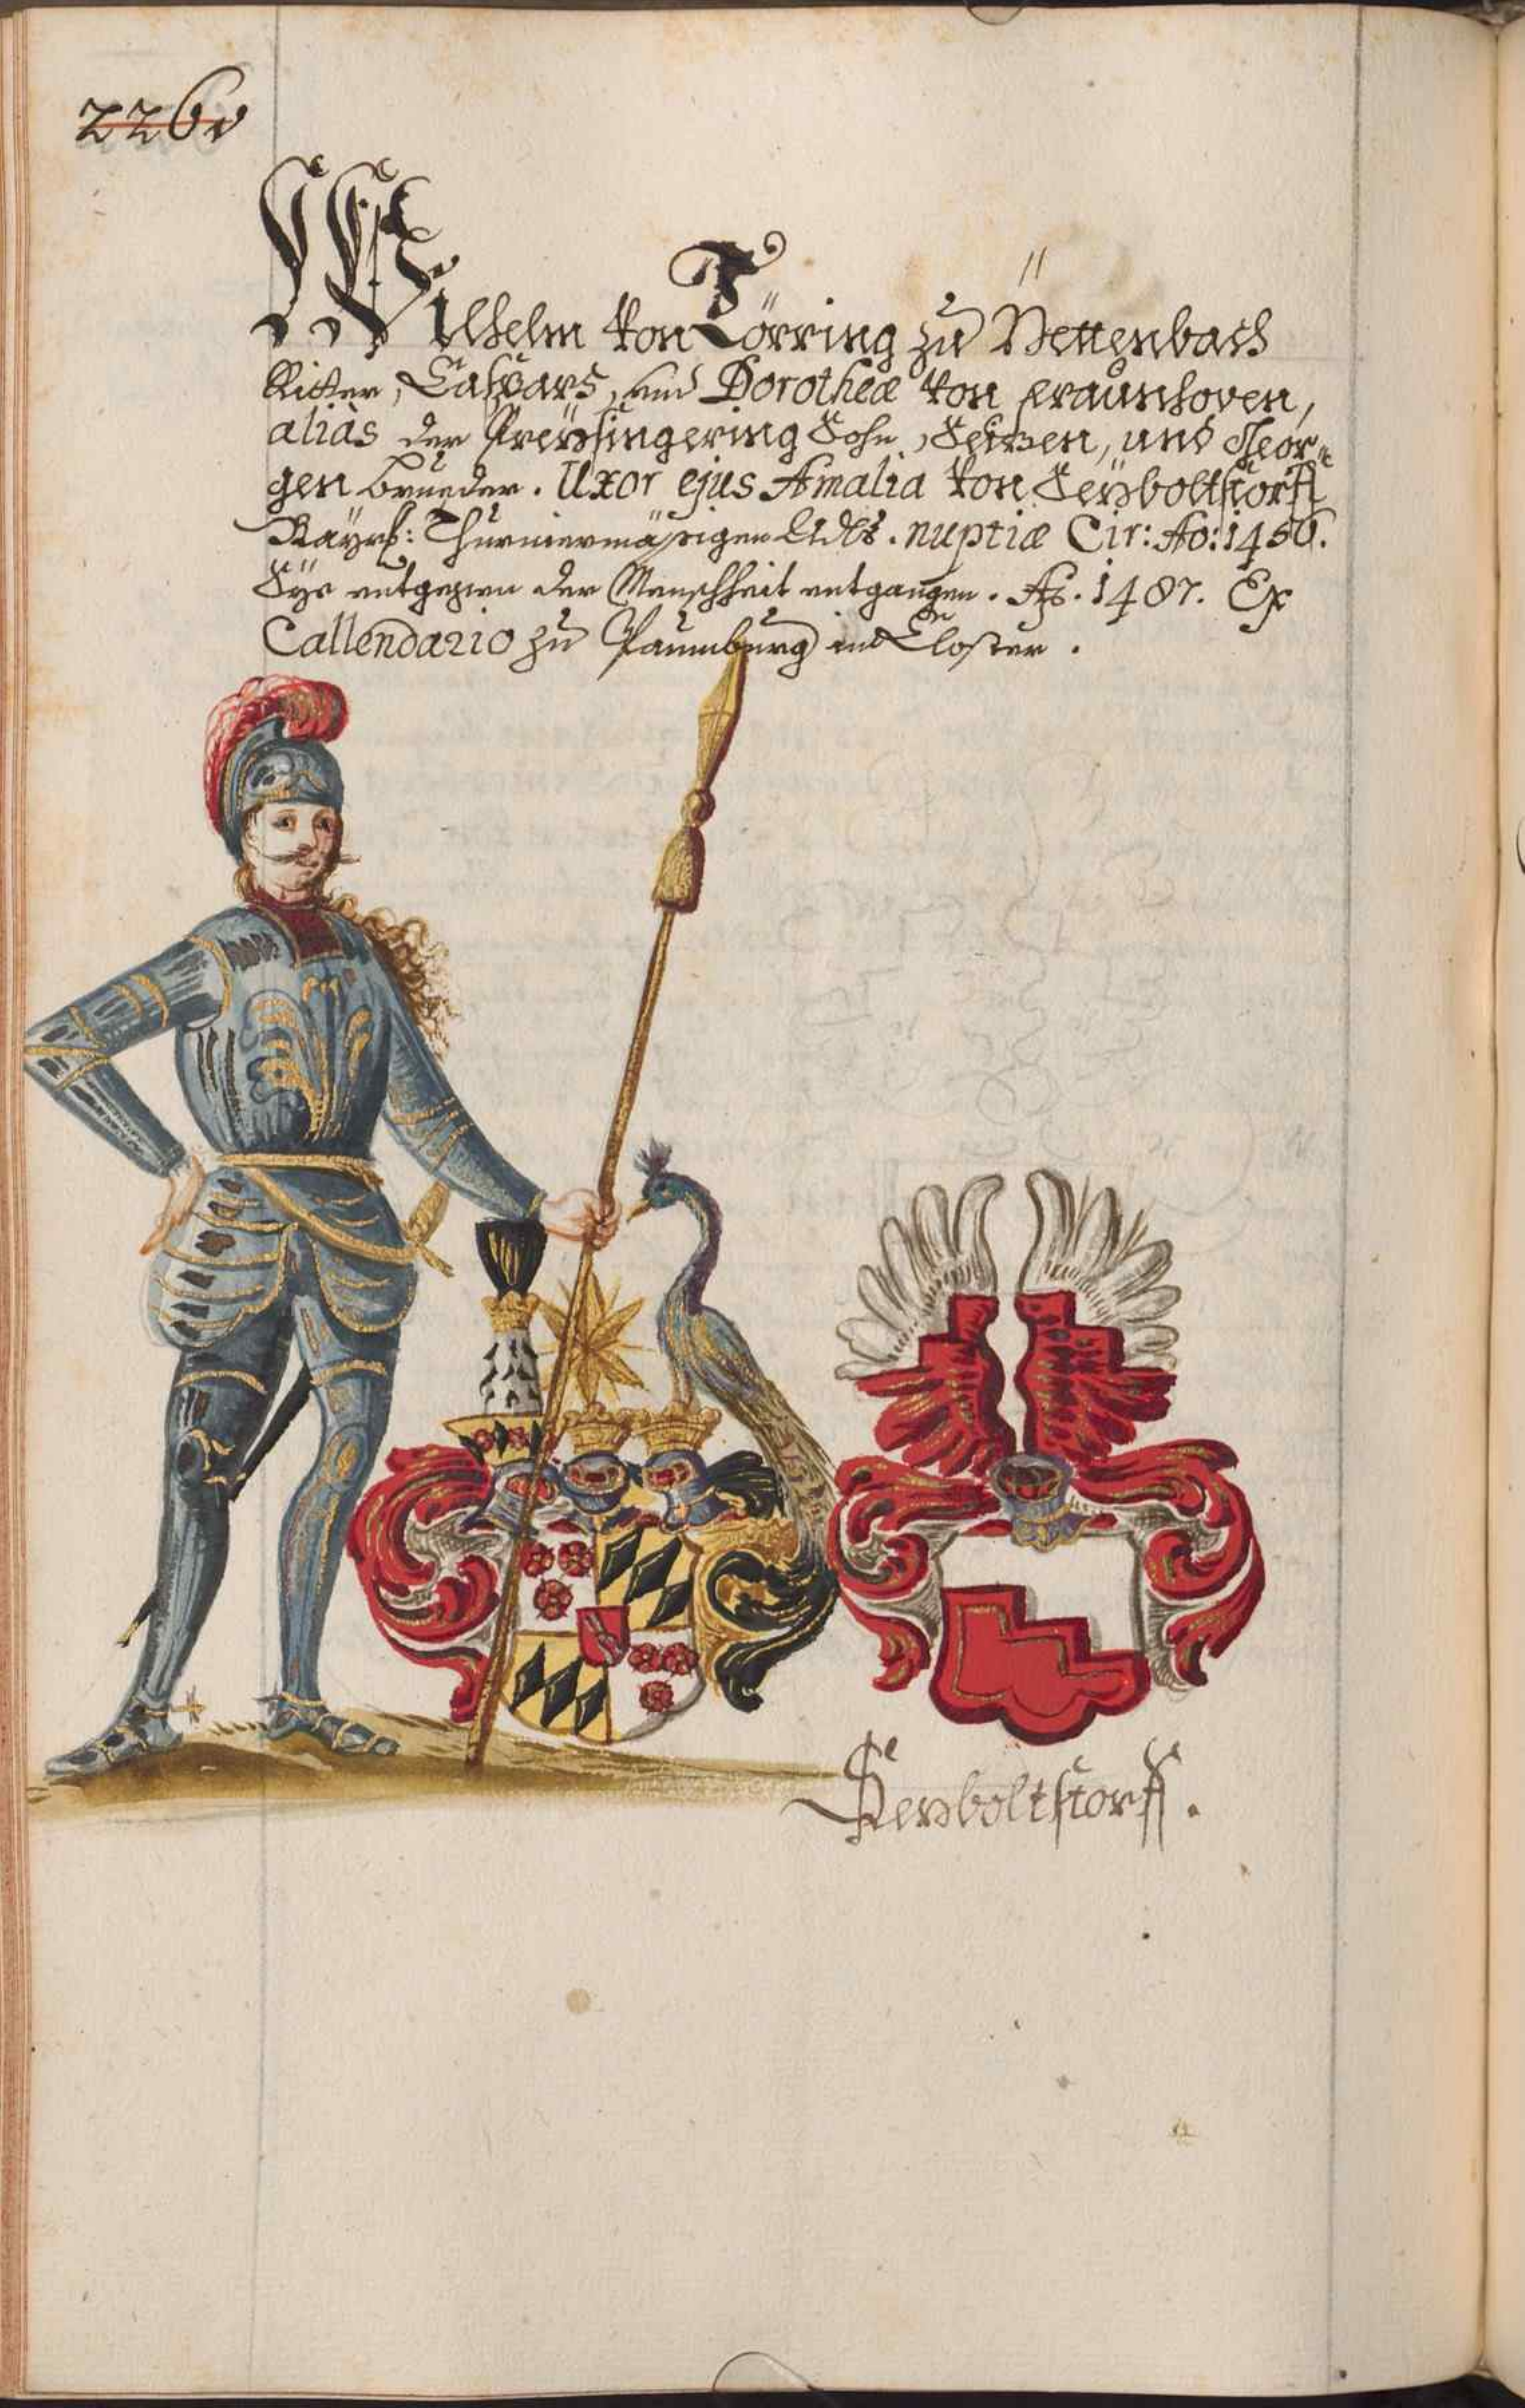 226v
Wilhelm von Törring zu Pettenbach
Ritter, Caspars, und Dorotheæ von Fraunhoven,
alias der Preÿsingering Sohn, Seizen, und Geor=
gen Brueder. Uxor ejus Amalia von Seÿboltstorff
Bayrl: Thurniermäsigen Adls. nuptiæ Cir: Ao: 1450.
Sÿe der Menschheit entgangen. Ao. 1487. Ex
Callendario zu Paumburg im Closter.
Seyboltstorff.